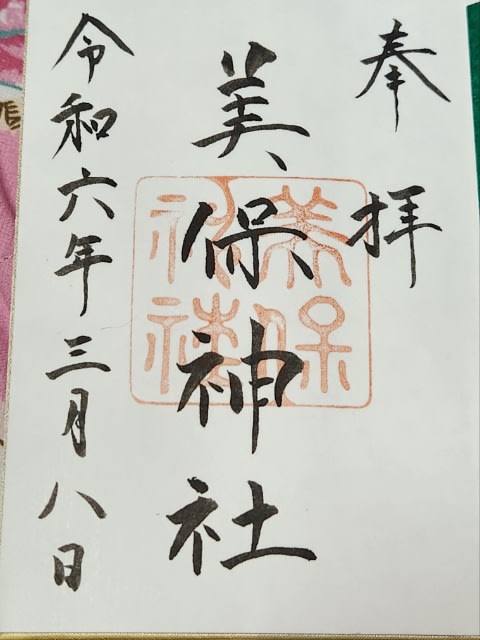 奉拝
美保神社
美保
神社
令和六年三月八日